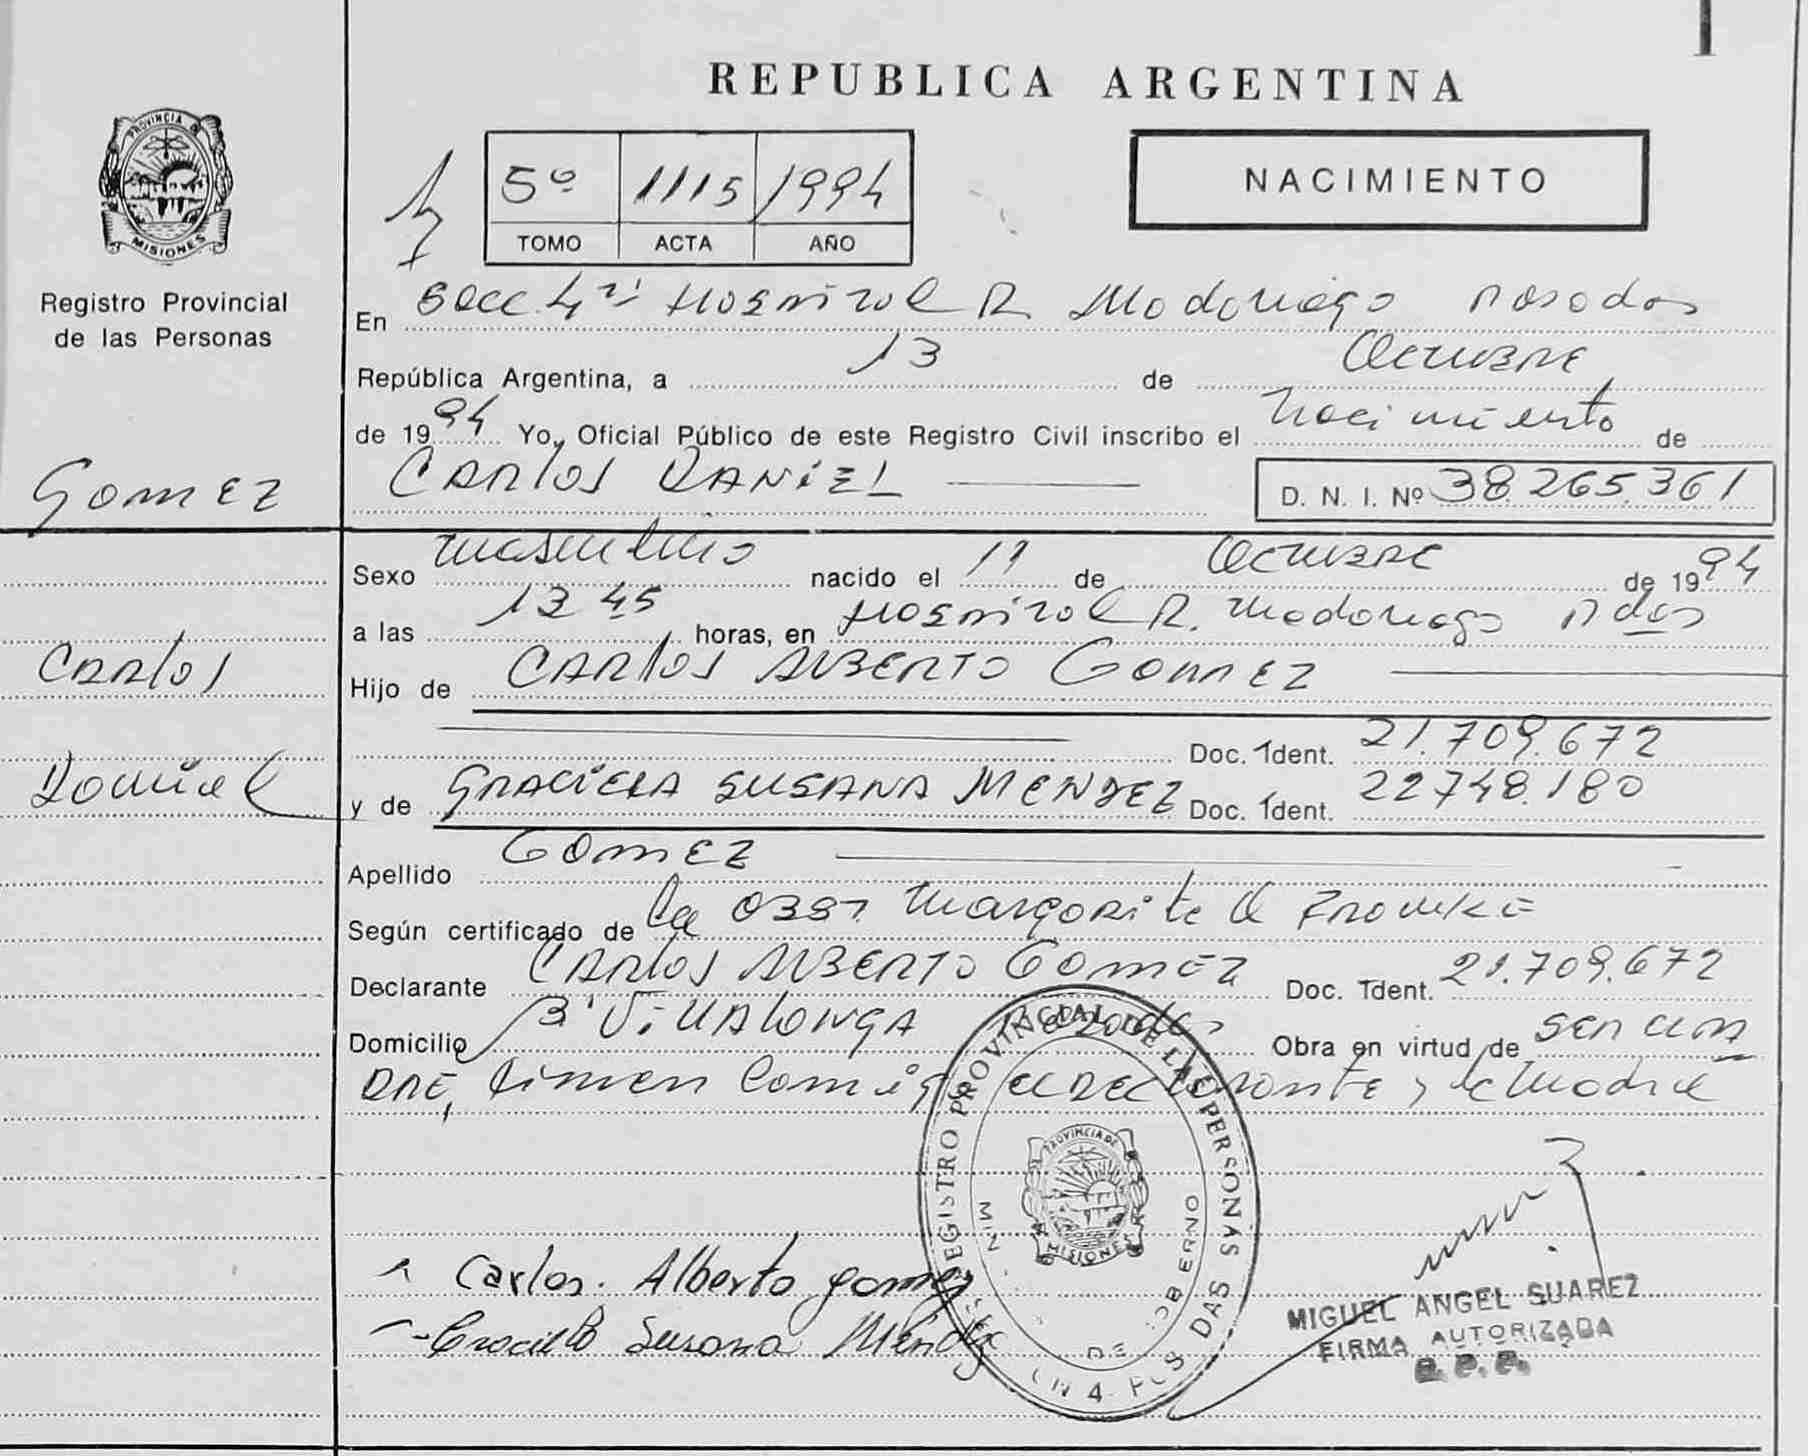 REPUBLICA ARGENTINA
PROVINCIA DE
MISIONES
Registro Provincial
de las Personas
5º 1115 1994
TOMO ACTA AÑO
NACIMIENTO
En Secc. 4ta Hospital R. Madariaga Posadas
República Argentina, a 13 de Octubre
de 1994 Yo, Oficial Público de este Registro Civil inscribo el Nacimiento de
Gomez
CARLOS DANIEL
D. N. I. Nº 38.265.361
Sexo Masculino nacido el 11 de Octubre de 1994
a las 13 45 horas, en Hospital R. Madariaga Pdas
Carlos
Hijo de CARLOS ALBERTO GOMEZ
Doc. Ident. 21.709.672
Daniel
y de GRACIELA SUSANA MENDEZ Doc. Ident. 22748.180
Apellido GOMEZ
Según certificado de la Obst. Margarita
Declarante CARLOS ALBERTO GOMEZ Doc. Ident. 21.709.672
Domicilio Bº VILLALONGA Posadas Obra en virtud de ser un
firmen Conmigo el Declarante y la Madre
REGISTRO PROVINCIAL DE LAS PERSONAS
PROVINCIA DE
MISIONES
DE GOBIERNO
4 POSADAS
Carlos Alberto gomez
Graciela Susana Méndez
MIGUEL ANGEL SUAREZ
FIRMA AUTORIZADA